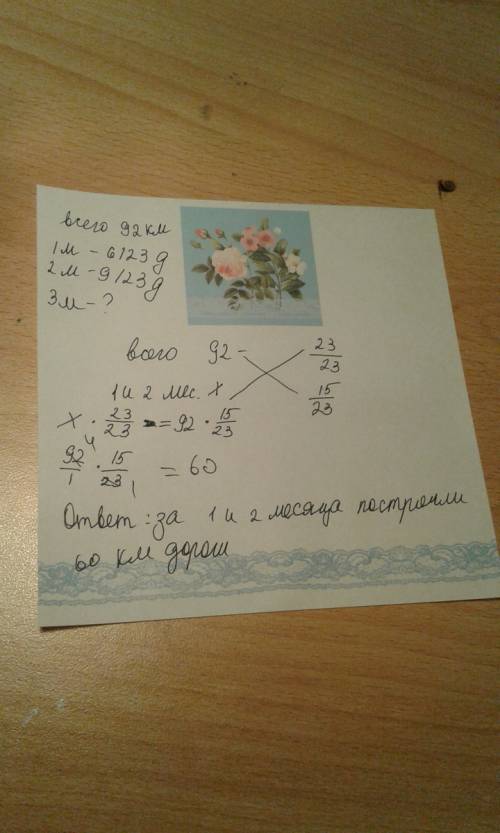 всего 92 км
1м - 6/23 д
2м - 9/23 д
3м - ?
всего 92 - 23/23
1 и 2 мес. x 15/23
x · 23/23 = 92 · 15/23
92/1 · 15/23 = 60
4 1
Ответ: за 1 и 2 месяца построили
60 км дороги